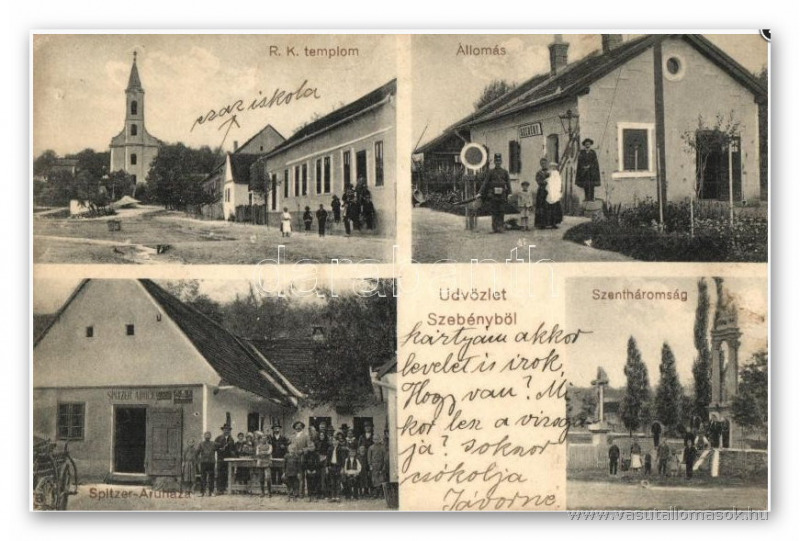 R. K. templom
ez az iskola
Állomás
SZEBÉNY
darabanth
Üdvözlet
Szebényből
kártyám akkor
levelet is irok,
Hogy van? Mi
kor lesz a vizsga
ja? sokszor
csókolja
Jávorné
Szentháromság
SPITZER
Spitzer-Áruháza
www.vasutallomasok.hu